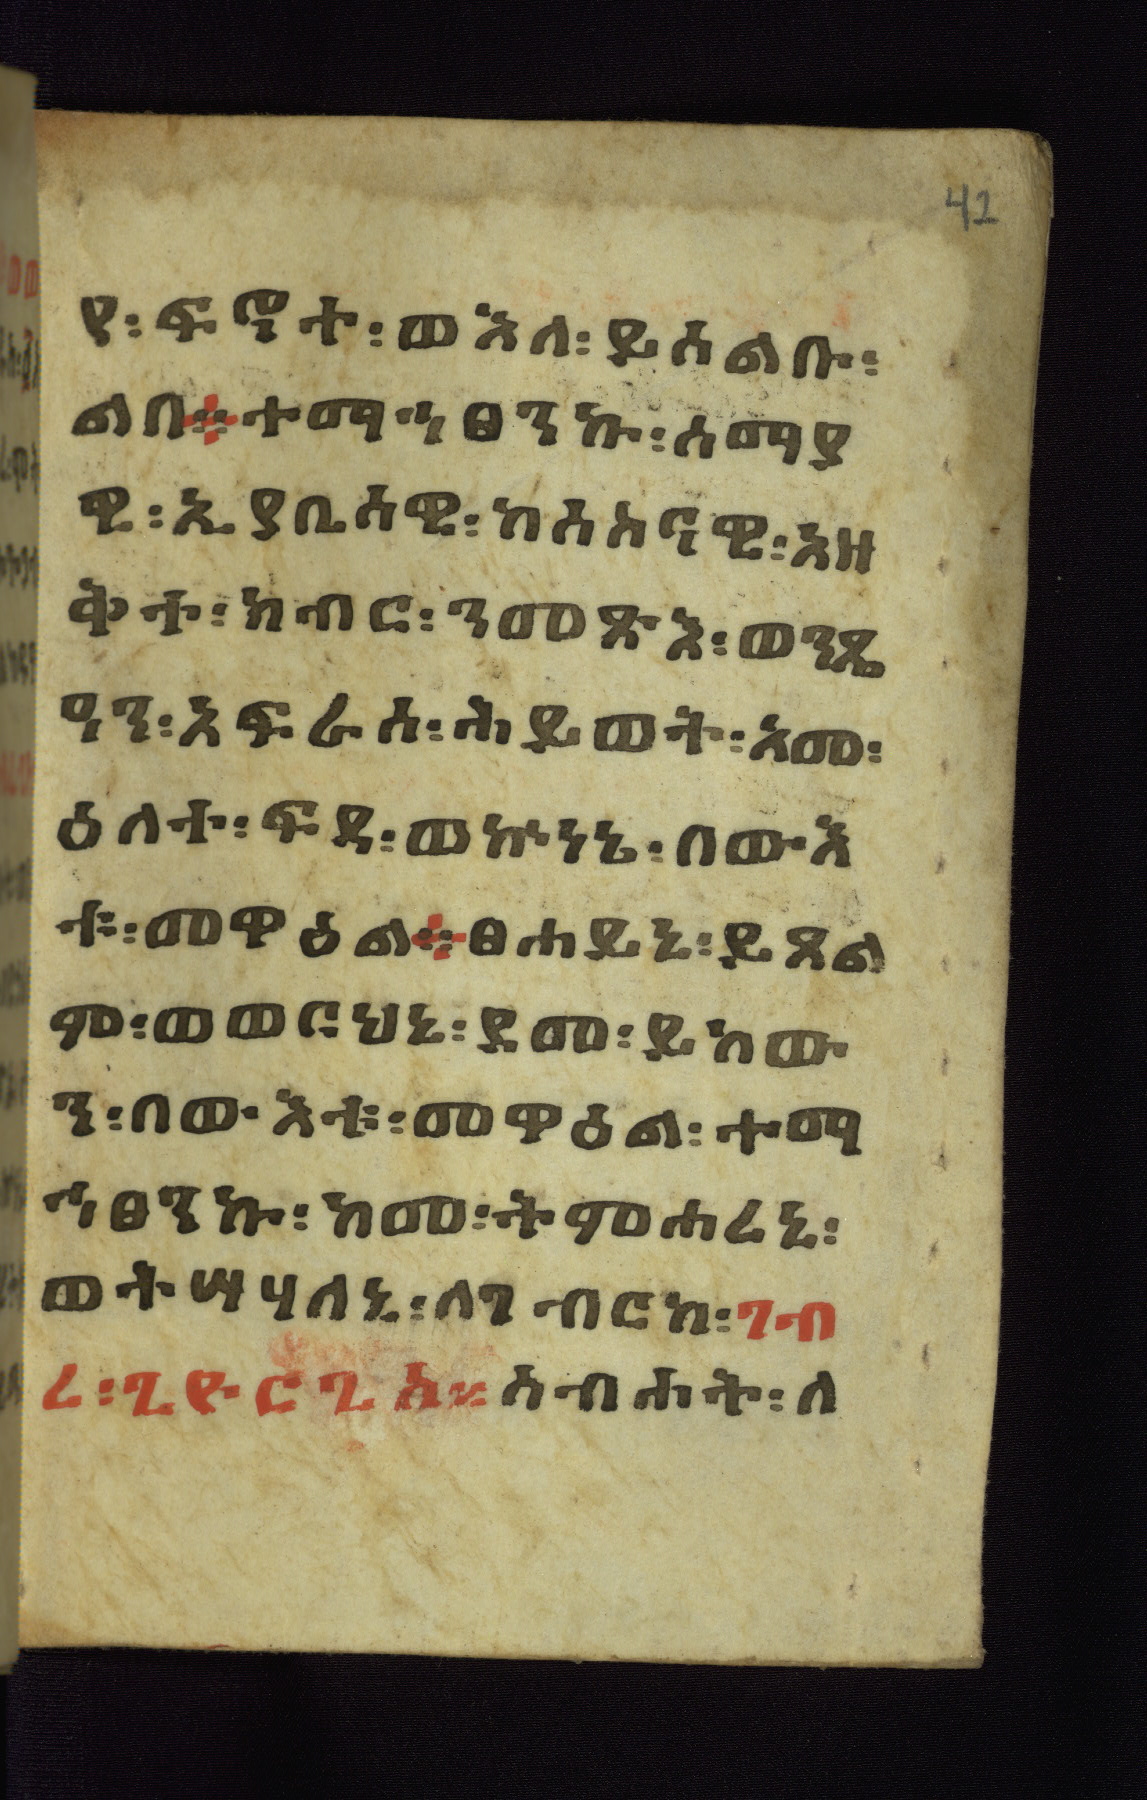 42
የ፡ፍኖተ፡ወእለ፡ይስልቡ፡
ልበ፨ተማኅፀንኩ፡ሰማያ
ዊ፡ኢያቢሳዊ፡ከሰስናዊ፡አዘ
ቅተ፡ክብር፡ንመጽእ፡ወንጼ
ዓን፡አፍራሰ፡ሕይወት፡አመ፡
ዕለተ፡ፍዳ፡ወኵነኔ፡በውእ
ቱ፡መዋዕል፨ፀሐይኒ፡ይጸል
ም፡ወወርህኒ፡ደመ፡ይከው
ን፡በውእቱ፡መዋዕል፡ተማ
ኅፀንኩ፡ከመ፡ትምሐረኒ፡
ወትሣሃለኒ፡ለገብርከ፡ገብ
ረ፡ጊዮርጊስ፡፡ስብሐት፡ለ